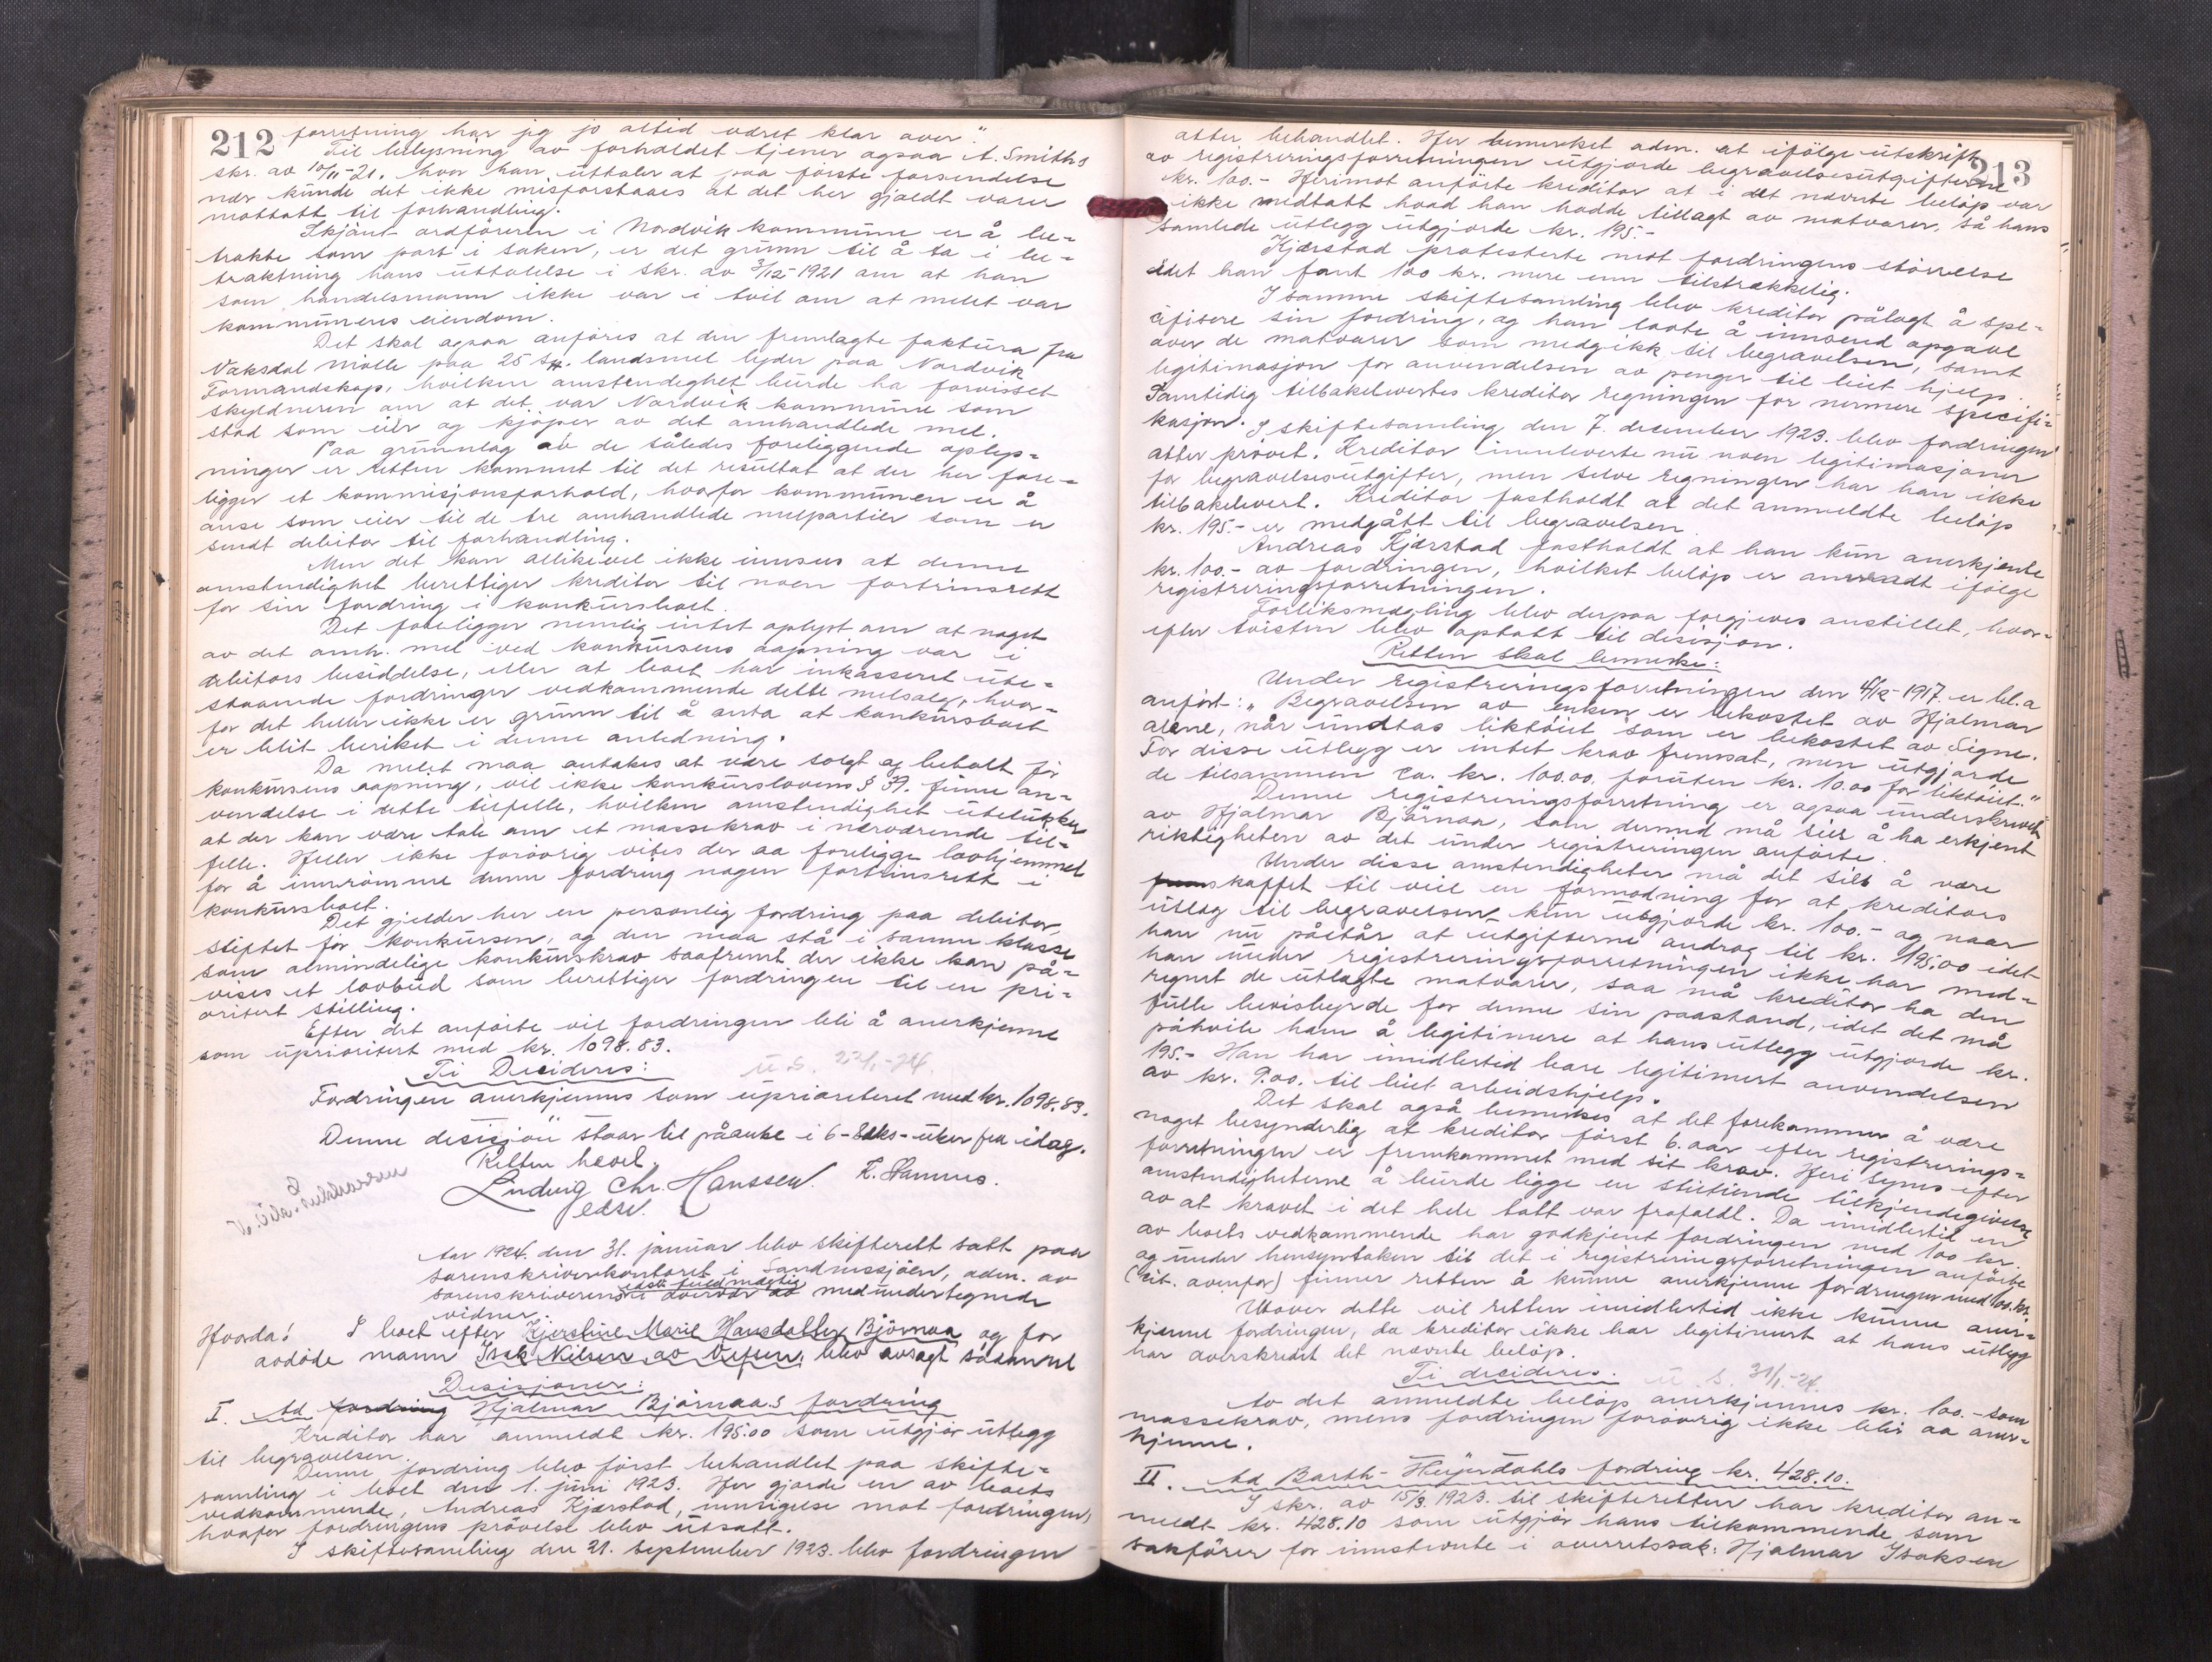 212 forretning har jeg jo altid været klar over."
Til belysning av forholdet tjener ogsaa A. Smiths
skr. av 10/11-21. hvor han uttaler at paa første forsendelse
mer kunde det ikke misforstaaes at det her gjaldt varer
mottatt til forhandling.
Skjønt ordføreren i Nordvik kommune er å be-
trakte som part i saken, er det grunn til å ta i be-
traktning hans uttalelse i skr. av 3/12 1921 om at han
som handelsmann ikke var i tvil om at melet var
kommunens eiendom.
Det skal ogsaa anføres at den fremlagte faktura fra
Vaksdal Mølle paa 25 sk. landsmel lyder paa Nordvik
Formandskap, hvilken omstendighet burde ha forvisset
skyldneren om at det var Nordvik kommune som
stod som eier og kjøper av det omhandlede mel.
Paa grunnlag av de således foreliggende oplys-
ninger er retten kommet til det resultat at der her fore-
ligger et kommisjonsforhold, hvorfor kommunen er å
anse som eier til de tre omhandlede melpartier som er
sendt debitor til forhandling.
Men det kan allikevel ikke innsees at denne
omstendighet berettiger kreditor til noen fortrinsrett
for sin fordring i konkursboet.
Det foreligger nemlig intet oplyst om at noget
av det omh. mel ved konkursens aapning var i
debitors besiddelse, eller at boet har inkasseret ute-
staaende fordringer vedkommende dette melsalg, hvor-
for det heller ikke er grunn til å anta at konkursboet
er blit beriket i denne anledning.
Da melet maa antakes at være solgt og betalt før
konkursens aapning, vil ikke konkurslovens § 39. finne an-
vendelse i dette tilfelle, hvilken omstendighet utelukker
at der kan være tale om et massekrav i nærværende til-
felle. Heller ikke forøvrig vites der aa foreligge lovhjemmel
for å innrømme denne fordring nogen fortrinsrett i
konkursboet.
Det gjelder her en personlig fordring paa debitor
stiftet før konkursen, og den maa stå i samme klasse
som almindelige konkurskrav saafremt der ikke kan på-
vises et lovbud som berettiger fordringen til en pri-
oritert stilling.
Efter det anførte vil fordringen bli å anerkjenne
som uprioritert med kr. 1098.83.
Ti Decideres: U.S. 22/1.-24.
Fordringen anerkjennes som uprioriteret med kr. 1098.83.
Denne desisjon staar til påanke i 6-seks-uker fra idag.
Retten hevet
Ludvig Chr. Hanssen. K. Hannes.
edsv.
Aar 1924. den 31. januar blev skifterett satt paa
sorenskriverkontoret i Sandnessjøen, adm. av
sorenskriverens edsv. fuldmægtig i overvær av med undertegnede
vidner.
Hvorda! I boet efter Kjerstine Marie Hansdatter Bjørnaa og før
avdøde mann Isak Nilsen av Vefsen, blev avsagt sådanne
Desisjoner:
I. Ad fordring Hjalmar Bjørnaas fordring
Kreditor har anmeldt kr. 195.00 som utgjør utlegg
til begravelsen.
Denne fordring blev først behandlet paa skifte-
samling i boet den 1. juni 1923. Her gjorde en av boets
vedkommende, Andreas Kjærstad, innsigelse mot fordringen,
hvorfor fordringens prøvelse blev utsatt.
I skiftesamling den 21. september 1923. blev fordringen
213
atter behandlet. Her bemerket adm. at ifølge utskrift
av registreringsforretningen utgjorde begravelsesutgifterne
kr. 100.- Herimot anførte kreditor at i det nævnte beløp var
ikke medtatt hvad han hadde tillagt av matvarer, så hans
samlede utlegg utgjorde kr. 195.-
Kjærstad protesterte mot fordringens størrelse
idet han fant 100 kr. mere enn tilstrækkelig.
I samme skiftesamling blev kreditor pålagt å spe-
cifisere sin fordring, og han lovte å innsend opgave
over de matvarer som medgikk til begravelsen, samt
legitimasjon for anvendelsen av penger til leiet hjelp.
Samtidig tilbakelevertes kreditor regningen for nermere specifi-
kasjon. I skiftesamling den 7. desember 1923. blev fordringen
atter prøvet. Kreditor innleverte nu noen legitimasjoner
for begravelsesutgifter, men selve regningen har han ikke
tilbakelevert. Kreditor fastholdt at det anmeldte beløp
kr. 195.- er medgått til begravelsen.
Andreas Kjærstad fastholdt at han kun anerkjente
kr. 100.- av fordringen, hvilket beløp er anvendt ifølge
registreringsforretningen.
Forliksmegling blev derpaa forgjeves anstillet, hvor-
efter tvisten blev optatt til desisjon.
Retten skal bemerke:
Under registreringsforretningen den 4/12-1917. er bl.a
anført: "Begravelsen av enken er bekostet av Hjalmar
alene, når undtas liktøiet som er bekostet av Signe.
For disse utlegg er intet krav fremsat, men utgjorde
de tilsammen ca. kr. 100.00. foruten kr. 10.00 for liktøiet."
Denne registreringsforretning er ogsaa underskrevet
av Hjalmar Bjørnaa, som dermed må sies å ha erkjent
riktigheten av det under registreringen anførte.
Under disse omstendigheter må det sies å være
frem skaffet til veie en formodning for at kreditors
utlæg til begravelsen kun utgjorde kr. 100.- og naar
han nu påstår at utgifterne androg til kr. 195.00 idet
han under registreringsforretningen ikke har med-
regnet de utlagte matvarer, saa må kreditor ha den
fulle bevisbyrde for denne sin paastand, idet det må
påhvile ham å legitimere at hans utlegg utgjorde kr.
195.- Han har imidlertid bare legitimert anvendelsen
av kr. 9.00. til leiet arbeidshjelp.
Det skal også bemerkes at det forekommer å være
noget besynderlig at kreditor først 6. aar efter registrerings-
forretningen er fremkommet med sit krav. Heri synes efter
omstendigheterne å burde ligge en stiltiende tilkjendegivelse
av at kravet i det hele tatt var frafaldt. Da imidlertid en
av boets vedkommende har godkjent fordringen med 100 kr.
og under hensyntaken til det i registreringsforretningen anførte
(cit. ovenfor) finner retten å kunne anerkjenne fordringen med 100. kr.
Utover dette vil retten imidlertid ikke kunne aner-
kjenne fordringen, da kreditor ikke har legitimert at hans utlegg
har overskredet det nævnte beløp.
Ti decideres. U.S. 31/1.-24.
Av det anmeldte beløp anerkjennes kr. 100.- som
massekrav, mens fordringen forøvrig ikke blir aa aner-
kjenne.
II. Ad Barth-Heyerdahls fordring kr. 428.10.
I skr. av 15/3. 1923. til skifteretten har kreditor an-
meldt kr. 428.10 som utgjør hans tilkommende som
sakfører for innstevnte i overretssak: Hjalmar Isaksen